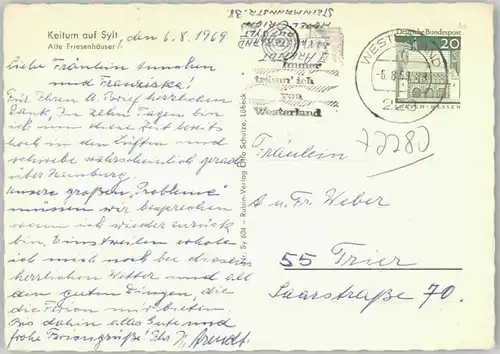 Keitum auf Sylt
Alte Friesenhäuser
den 6.8.1969
Liebe Fräulein
und Franziska!
Für Ihren Brief herzlichen
Dank. In zehn Tagen bin
ich um diese Zeit bereits
hoch in den Lüften und
schwebe wahrscheinlich gerade
über Hamburg.
Unsere großen "Probleme"
müssen wir besprechen
wenn ich wieder zurück
bin. Einstweilen erhole
ich mich noch bei diesem
herrlichen Wetter und all
den guten Dingen, die
die Ferien mir bieten.
Bis dahin alles Gute und
frohe Feriengrüße! Ihr H. Arendt.
Nr. Sy 604 - Rubin-Verlag Otto Schulze, Lübeck
STEINMANNSTR. 38
Immer
träum' ich
von
Westerland
WESTERLAND
Deutsche Bundespost
20
72280
Fräulein
A u. Fr. Weber
55 Trier
Saarstraße 70.